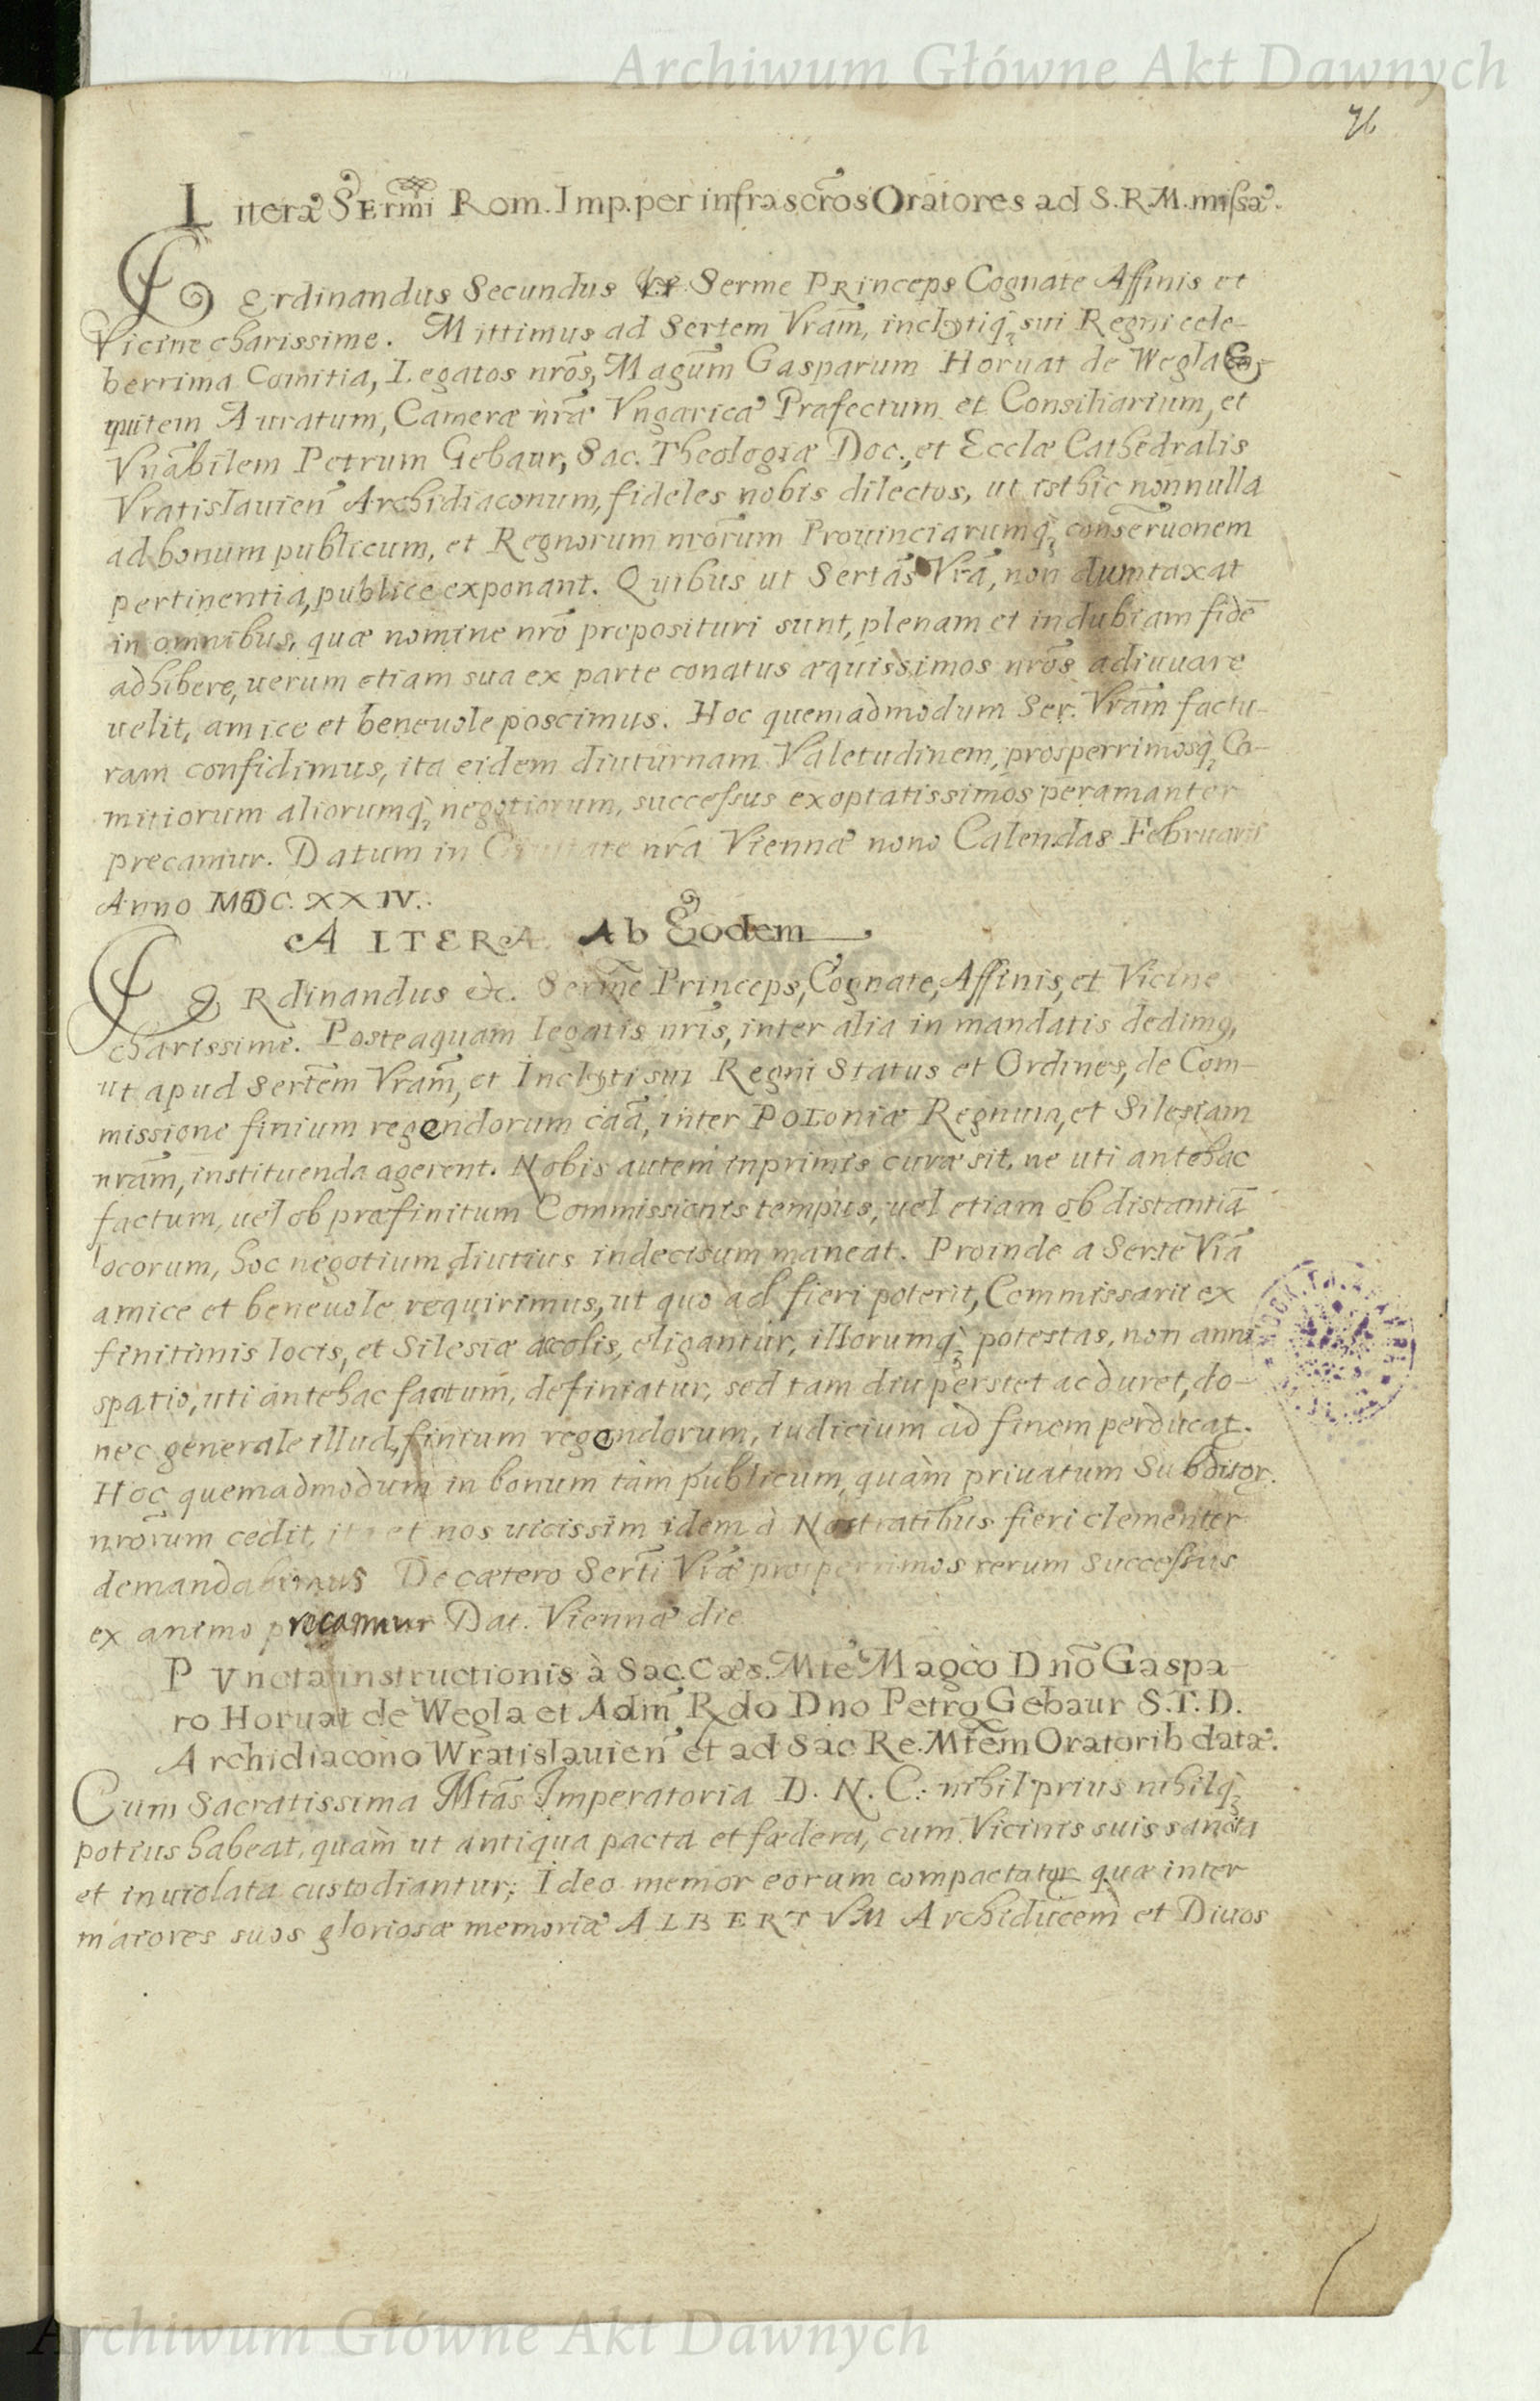 Archiwum Główne Akt Dawnych
76
Literæ Sermi Rom. Imp. per infrascr̃os Oratores ad S. R. M. missæ.
Ferdinandus Secundus Serme Princeps Cognate Affinis et
Vicine charissime. Mittimus ad Sertem Vram̃, inclytiq́; sui Regni cele-
berrima Comitia, Legatos nrõs, Magũm Gasparum Horuat de Wegla E-
quitem Auratum, Cameræ nr̃æ Vngaricæ Præfectum et Consiliarium, et
Vnãbilem Petrum Gebaur, Sac. Theologiæ Doc., et Ecclæ Cathedralis
Vratislauieñ Archidiaconum, fideles nobis dilectos, ut isthic nonnulla
ad bonum publicum, et Regnorum nrõrum Prouinciarumq́; conserũonem
pertinentia, publice exponant. Quibus ut Sertãs Vrã, non dumtaxat
in omnibus, quæ nomine nrõ preposituri sunt, plenam et indubiam fidẽ
adhibere, uerum etiam sua ex parte conatus æquissimos nrõs adiuuare
uelit, amice et beneuole poscimus. Hoc quemadmodum Ser. Vram̃ factu-
ram confidimus, ita eidem diuturnam Valetudinem, prosperrimosq́; Co-
mitiorum aliorumq́; negotiorum, successus exoptatissimos peramanter
precamur. Datum in Ciuitate nrã Viennæ nono Calendas Februarii
Anno MDC. XXIV.
ALTERA Ab Eodem
FERdinandus &c. Serme Princeps, Cognate, Affinis, et Vicine
charissime. Posteaquam legatis nrĩs, inter alia in mandatis dedimg,
ut apud Sertẽm Vram̃, et Inclyti sui Regni Status et Ordines, de Com-
missione finium regendorum cãã, inter POLoniæ Regnum, et Silesiam
nram̃, instituenda agerent. Nobis autem inprimis curæ sit, ne uti antehac
factum, uel ob præfinitum Commissionis tempus, uel etiam ob distantiã
locorum, hoc negotium diutius indecisum maneat. Proinde a Serte Vrã
amice et beneuole requirimus, ut quo ad fieri poterit, Commissarii ex
finitimis locis, et Silesiæ acolis, eligantur, illorumq́; potestas, non anni
spatio, uti antehac factum, definiatur, sed tam diu perstet ac duret, do-
nec generale illud, finium regendorum, iudicium ad finem perducat.
Hoc quemadmodum in bonum tàm publicum, quàm priuatum Subditor.
nrõrum cedit, ita et nos uicissim idem à Nostratibus fieri clementer
demandabimus De cætero Serti Vræ prosperrimos rerum successus
ex animo precamur Dat. Viennæ die
PVncta instructionis à Sac. Cæs. Mte Magco Dnõ Gaspa-
ro Horuat de Wegla et Adm̃ Rdo Dno Petro Gebaur S. T. D.
Archidiacono Wratislauieñ et ad Sac Re. Mtem Oratorib data.
Cum Sacratissima Mtãs Imperatoria D. N. C: nihil prius nihilq́;
potius habeat, quàm ut antiqua pacta et fœdera, cum Vicinis suis sancta
et inuiolata custodiantur; Ideo memor eorum compactator quæ inter
maiores suos gloriosæ memoriæ ALBERTVM Archiducem et Diuos
Archiwum Główne Akt Dawnych